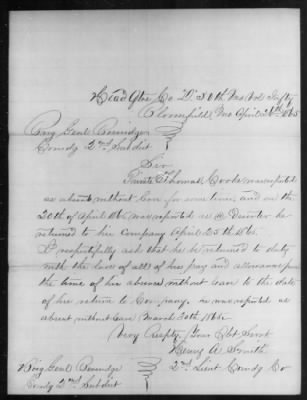 Head Qtrs Co. D. 50th Mo Vol Infty
Bloomfield, Mo April 26th 1865
Brig Genl
Comdg 2nd Sub dist
Sir
Private Thomas Cooke was reported
as absent without leave for some time, and on the
20th of April 1865 was reported as a Deserter he
returned to his Company April 25th 1865.
I respectfully ask that he be returned to duty
with the loss of all of his pay and allowances from
the time of his absence without leave to the date
of his return to Company. he was reported as
absent without leave March 30th 1865.
Very Respty, Your Obt Servt
Henry A. Smith
2nd Lieut Comdg Co
Brig Genl
Comdg 2nd Sub dist